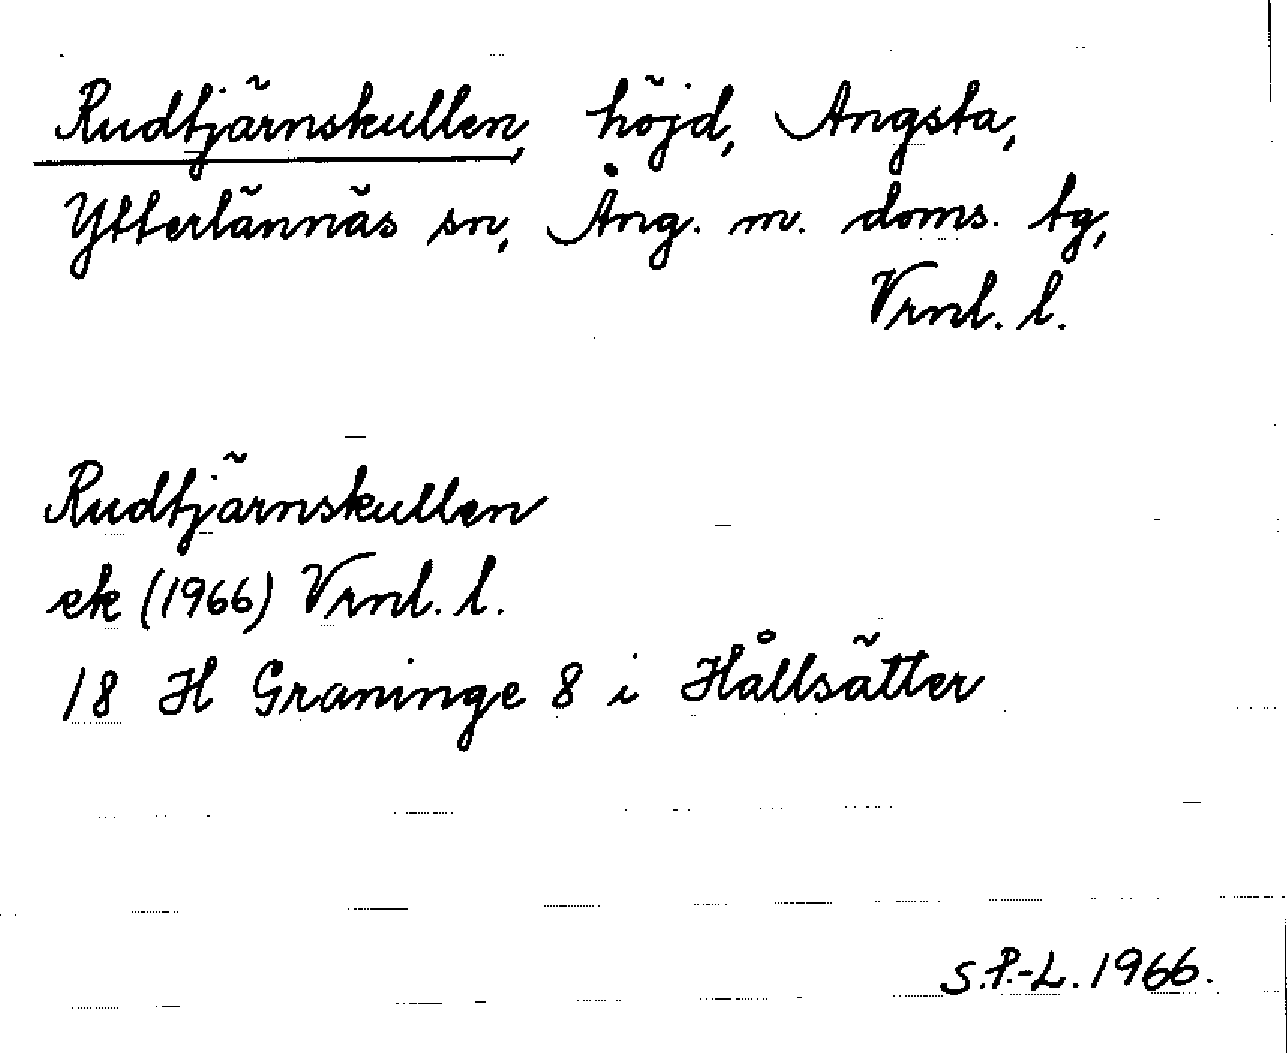 Rudtjärnskullen, höjd, Angsta,
Ytterlännäs sn, Ång. m. doms. tg,
Vrnl. l.
Rudtjärnskullen
ek (1966) Vrnl. l.
18 H Graninge 8 i Hållsätter
S.P.-L. 1966.